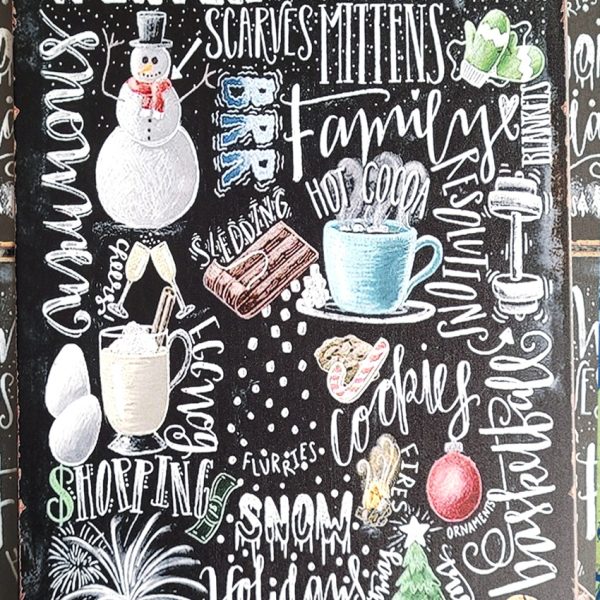 SCARVES
MITTENS
snowmen
BRR
Family
BLANKETS
HOT COCOA
RESOLUTIONS
SLEDDING
cheers
EGGNOG
cookies
basketball
FLURRIES
FIRES
$HOPPING
SNOW
ORNAMENTS
Holidays